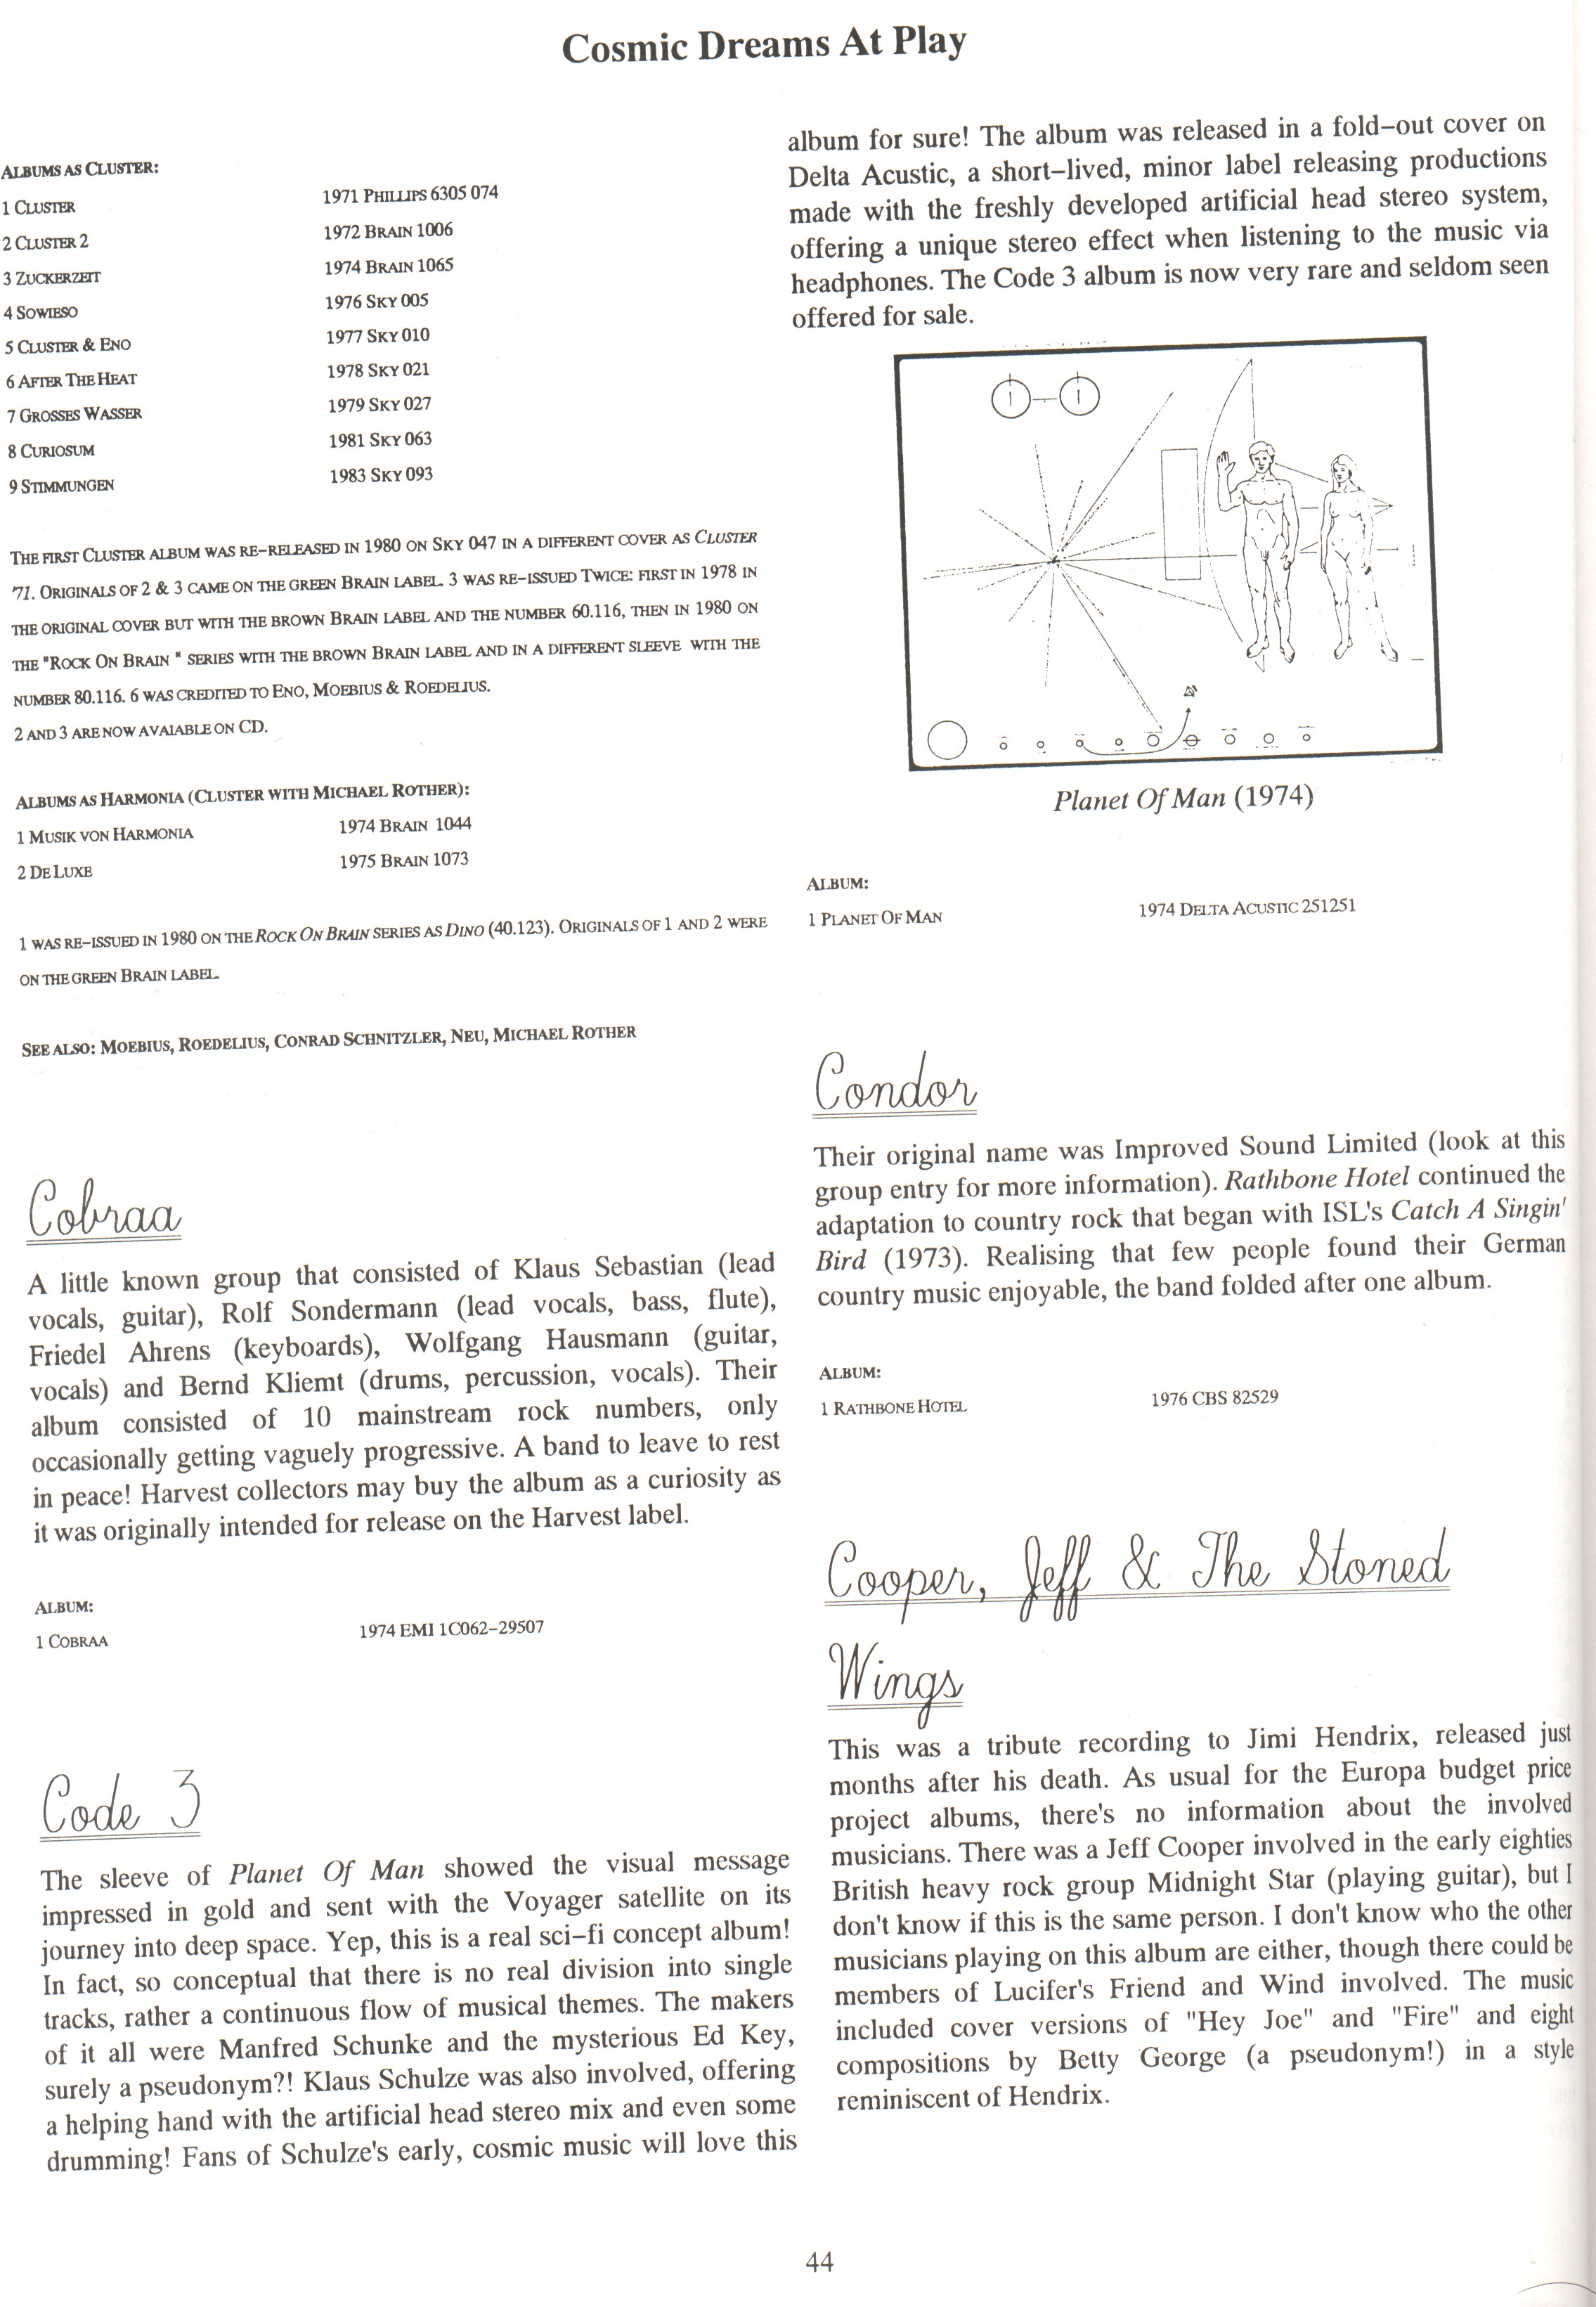 Cosmic Dreams At Play
ALBUMS AS CLUSTER:
1 CLUSTER 1971 PHILLIPS 6305 074
2 CLUSTER 2 1972 BRAIN 1006
3 ZUCKERZEIT 1974 BRAIN 1065
4 SOWIESO 1976 SKY 005
5 CLUSTER & ENO 1977 SKY 010
6 AFTER THE HEAT 1978 SKY 021
7 GROSSES WASSER 1979 SKY 027
8 CURIOSUM 1981 SKY 063
9 STIMMUNGEN 1983 SKY 093
THE FIRST CLUSTER ALBUM WAS RE-RELEASED IN 1980 ON SKY 047 IN A DIFFERENT COVER AS CLUSTER
'71. ORIGINALS OF 2 & 3 CAME ON THE GREEN BRAIN LABEL. 3 WAS RE-ISSUED TWICE: FIRST IN 1978 IN
THE ORIGINAL COVER BUT WITH THE BROWN BRAIN LABEL AND THE NUMBER 60.116, THEN IN 1980 ON
THE "ROCK ON BRAIN " SERIES WITH THE BROWN BRAIN LABEL AND IN A DIFFERENT SLEEVE WITH THE
NUMBER 80.116. 6 WAS CREDITED TO ENO, MOEBIUS & ROEDELIUS.
2 AND 3 ARE NOW AVAIABLE ON CD.
ALBUMS AS HARMONIA (CLUSTER WITH MICHAEL ROTHER):
1 MUSIK VON HARMONIA 1974 BRAIN 1044
2 DE LUXE 1975 BRAIN 1073
1 WAS RE-ISSUED IN 1980 ON THE ROCK ON BRAIN SERIES AS DINO (40.123). ORIGINALS OF 1 AND 2 WERE
ON THE GREEN BRAIN LABEL.
SEE ALSO: MOEBIUS, ROEDELIUS, CONRAD SCHNITZLER, NEU, MICHAEL ROTHER
Cobraa
A little known group that consisted of Klaus Sebastian (lead
vocals, guitar), Rolf Sondermann (lead vocals, bass, flute),
Friedel Ahrens (keyboards), Wolfgang Hausmann (guitar,
vocals) and Bernd Kliemt (drums, percussion, vocals). Their
album consisted of 10 mainstream rock numbers, only
occasionally getting vaguely progressive. A band to leave to rest
in peace! Harvest collectors may buy the album as a curiosity as
it was originally intended for release on the Harvest label.
ALBUM:
1 COBRAA 1974 EMI 1C062-29507
Code 3
The sleeve of Planet Of Man showed the visual message
impressed in gold and sent with the Voyager satellite on its
journey into deep space. Yep, this is a real sci-fi concept album!
In fact, so conceptual that there is no real division into single
tracks, rather a continuous flow of musical themes. The makers
of it all were Manfred Schunke and the mysterious Ed Key,
surely a pseudonym?! Klaus Schulze was also involved, offering
a helping hand with the artificial head stereo mix and even some
drumming! Fans of Schulze's early, cosmic music will love this
album for sure! The album was released in a fold-out cover on
Delta Acustic, a short-lived, minor label releasing productions
made with the freshly developed artificial head stereo system,
offering a unique stereo effect when listening to the music via
headphones. The Code 3 album is now very rare and seldom seen
offered for sale.
Planet Of Man (1974)
ALBUM:
1 PLANET OF MAN 1974 DELTA ACUSTIC 251251
Condor
Their original name was Improved Sound Limited (look at this
group entry for more information). Rathbone Hotel continued the
adaptation to country rock that began with ISL's Catch A Singin'
Bird (1973). Realising that few people found their German
country music enjoyable, the band folded after one album.
ALBUM:
1 RATHBONE HOTEL 1976 CBS 82529
Cooper, Jeff & The Stoned
Wings
This was a tribute recording to Jimi Hendrix, released just
months after his death. As usual for the Europa budget price
project albums, there's no information about the involved
musicians. There was a Jeff Cooper involved in the early eighties
British heavy rock group Midnight Star (playing guitar), but I
don't know if this is the same person. I don't know who the other
musicians playing on this album are either, though there could be
members of Lucifer's Friend and Wind involved. The music
included cover versions of "Hey Joe" and "Fire" and eight
compositions by Betty George (a pseudonym!) in a style
reminiscent of Hendrix.
44